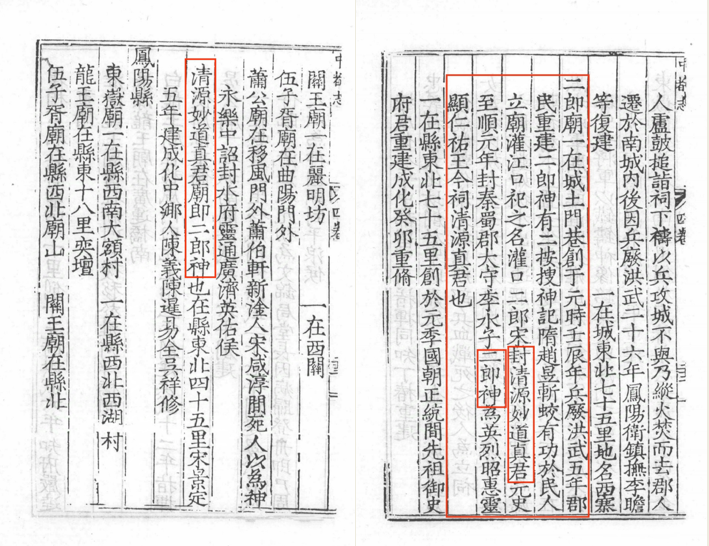 中都志 四卷
人盧鼓搥詣祠下禱以兵攻城不與乃縱火焚而去郡人
遷於南城內後因兵廢洪武二十六年鳳陽衛鎮撫李瞻
等復建　一在城東北七十五里地名西寨
二郎廟一在城土門巷創于元時壬辰年兵廢洪武五年郡
民重建二郎神有二按搜神記隋趙昱斬蛟有功於民人
立廟灌江口祀之名灌口二郎宋封清源妙道真君元史
至順元年封秦蜀郡大守李氷子二郎神為英烈昭惠靈
顯仁祐王今祠清源真君也
一在縣東北七十五里創於元季國朝正統間先祖御史
府君重建成化癸卯重脩
中都志 四卷
關王廟一在麗明坊　一在西關
伍子胥廟在曲陽門外
蕭公廟在移風門外蕭伯軒新淦人宋咸淳間死人以為神
永樂中詔封水府靈通廣濟英佑侯
清源妙道真君廟即二郎神也在縣東北四十五里宋景定
五年建成化中鄉人陳義陳暹易全吳祥修
鳳陽縣
東嶽廟一在縣西南大額村　一在縣西北西湖村
龍王廟在縣東十八里奕壇
伍子胥廟在縣西北廟山　關王廟在縣北